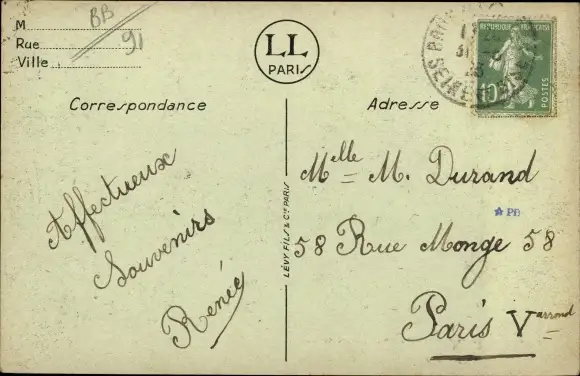 M
Rue
Ville
BB
91
LL
PARIS
Correspondance
Adresse
REPUBLIQUE FRANÇAISE
POSTES
Affectueux
Souvenirs
Renée
LÉVY FILS & Cie PARIS
Melle M. Durand
PB
58 Rue Monge 58
Paris V arrond